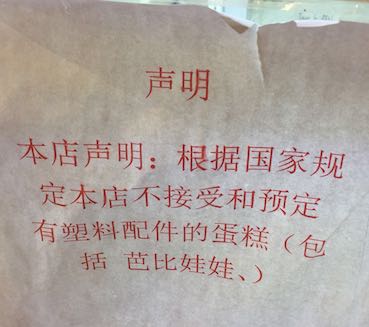 声明
本店声明：根据国家规
定本店不接受和预定
有塑料配件的蛋糕（包
括 芭比娃娃、）